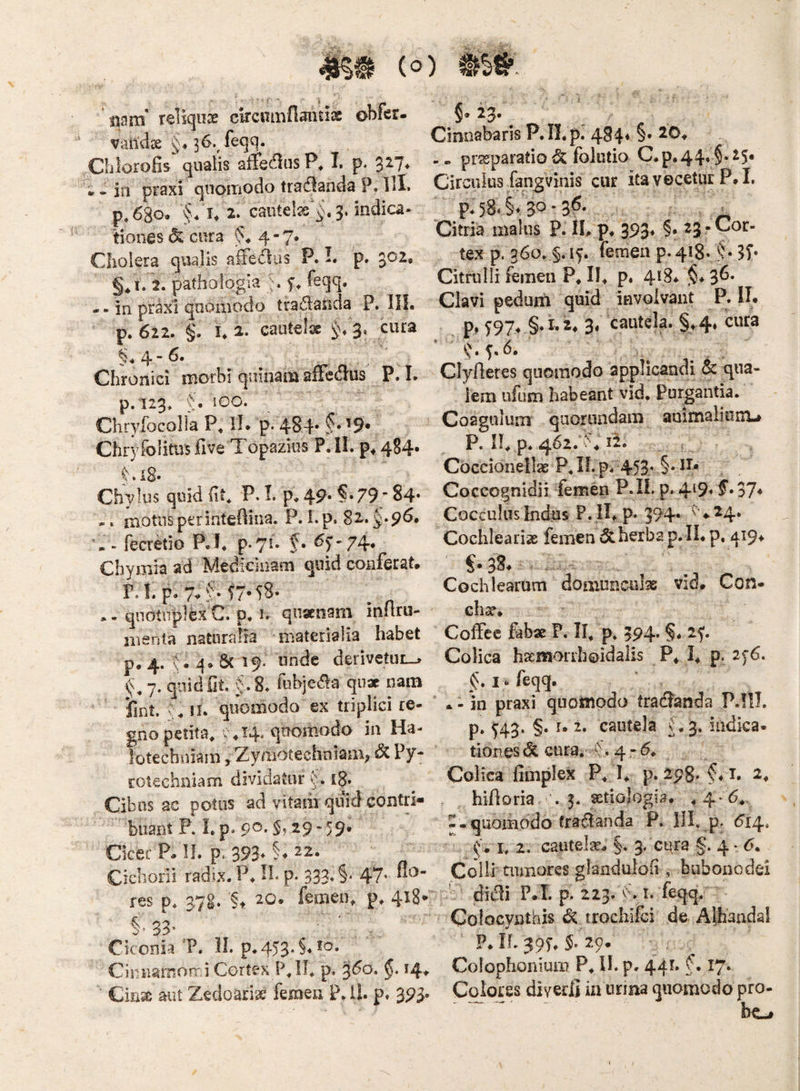 (o)
nam reliquæ circumſtantiæ obſer-
vandæ §. 36. ſeqq.
Chloroſis qualis affectus P. I. p. 327.
-- in praxi quomodo tractanda P. III.
p. 680. §. 1. 2. cautelæ §. 3. indica-
tiones & cura §. 4-7.
Cholera qualis affectus P. I. p. 302.
§. 1. 2. pathologia §. 5. ſeqq.
-- in praxi quomodo tractanda P. III.
p. 622. §. 1. 2. cautelæ §. 3. cura
§. 4-6.
Chronici morbi quinam affectus P. I.
p. 123. §. 100.
Chryſocolla P. II. p. 484. §. 19.
Chryſolitus ſive Topazius P. II. p. 484.
§. 18.
Chylus quid ſit. P. I. p. 49. §. 79-84.
-. motus per inteſtina. P. I. p. 82. §. 96.
-- ſecretio P. I. p. 71. §. 65-74.
Chymia ad Medicinam quid conferat.
P. I. p. 7. §. 57. 58.
-- quotuplex C. p. 1. quænam inſtru-
menta naturalia materialia habet
p. 4. §. 4. & 19. unde derivetur
§. 7. quid ſit. §. 8. ſubjecta quæ nam
ſint. §. 11. quomodo ex triplici re-
gno petita. §. 14. quomodo in Ha-
lotechniam, Zymotechniam, & Py-
rotechniam dividatur §. 18.
Cibus ac potus ad vitam quid contri-
buant P. I. p. 90. §. 29-59.
Cicer P. II. p. 393. §. 22.
Cichorii radix. P. II. p. 333. §. 47. flo-
res p. 378. §. 20. ſemen. p. 418.
§. 33.
Ciconia P. II. p. 453. §. 10.
Cinnamomi Cortex P. II. p. 360. §. 14.
Cinæ aut Zedoariæ ſemen P. II. p. 393.
§. 23.
Cinnabaris P. II. p. 484. §. 20.
-- præparatio & ſolutio C. p. 44. §. 25.
Circulus ſangvinis cur ita vocetur P. I.
p. 58. §. 30-36.
Citria malus P. II. p. 393. §. 23-Cor-
tex p. 360. §. 15. ſemen p. 418. §. 35.
Citrulli ſemen P. II. p. 418. §. 36.
Clavi pedum quid involvant P. II.
p. 597. §. 1. 2. 3. cautela. §. 4. cura
§. 5. 6.
Clyſteres quomodo applicandi & qua-
lem uſum habeant vid. Purgantia.
Coagulum quorundam animalium
P. II. p. 462. §. 12.
Coccionellæ P. II. p. 453. §. 11.
Coccognidii ſemen P. II. p. 419. §. 37.
Cocculus Indus P. II. p. 394. §. 24.
Cochleariæ ſemen & herba p. II. p. 419.
§. 38.
Cochlearum domunculæ vid. Con-
chæ.
Coffee fabæ P. II. p. 394. §. 25.
Colica hæmorrhoidalis P. I. p. 256.
§. 1. ſeqq.
-- in praxi quomodo tractanda P. III.
p. 543. §. 1. 2. cautela §. 3. indica-
tiones & cura. §. 4-6.
Colica ſimplex P. I. p. 298. §. 1. 2.
hiſtoria §. 3. ætiologia. §. 4-6.
-- quomodo tractanda P. III. p. 614.
§. 1. 2. cautelæ. §. 3. cura §. 4-6.
Colli tumores glanduloſi, bubonodei
dicti P. I. p. 223. §. 1. ſeqq.
Colocynthis & trochiſci de Alhandal
P. II. 395. §. 29.
Colophonium P. II. p. 441. §. 17.
Colores diverſi in urina quomodo pro-
be